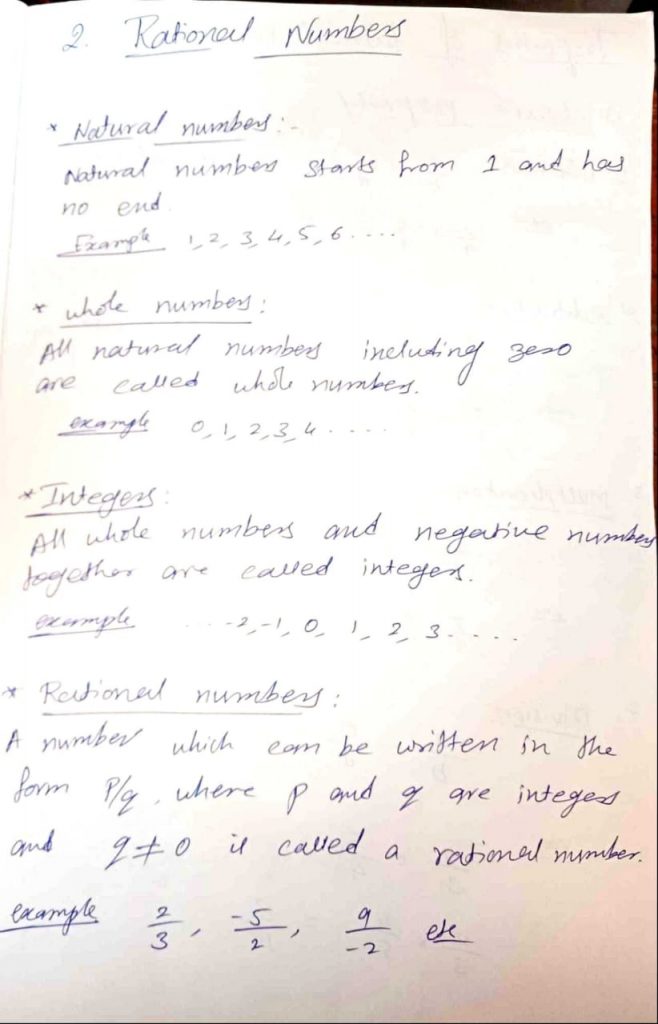 2. Rational Numbers
* Natural numbers:-
Natural numbers starts from 1 and has
no end.
Example 1, 2, 3, 4, 5, 6 ....
* whole numbers:
All natural numbers including zero
are called whole numbers.
example 0, 1, 2, 3, 4 .....
* Integers:
All whole numbers and negative numbers
together are called integers.
example .... -2, -1, 0, 1, 2, 3 .....
* Rational numbers:
A number which can be written in the
form P/q, where p and q are integers
and q ≠ 0 is called a rational number.
example 2/3, -5/2, 9/-2 etc